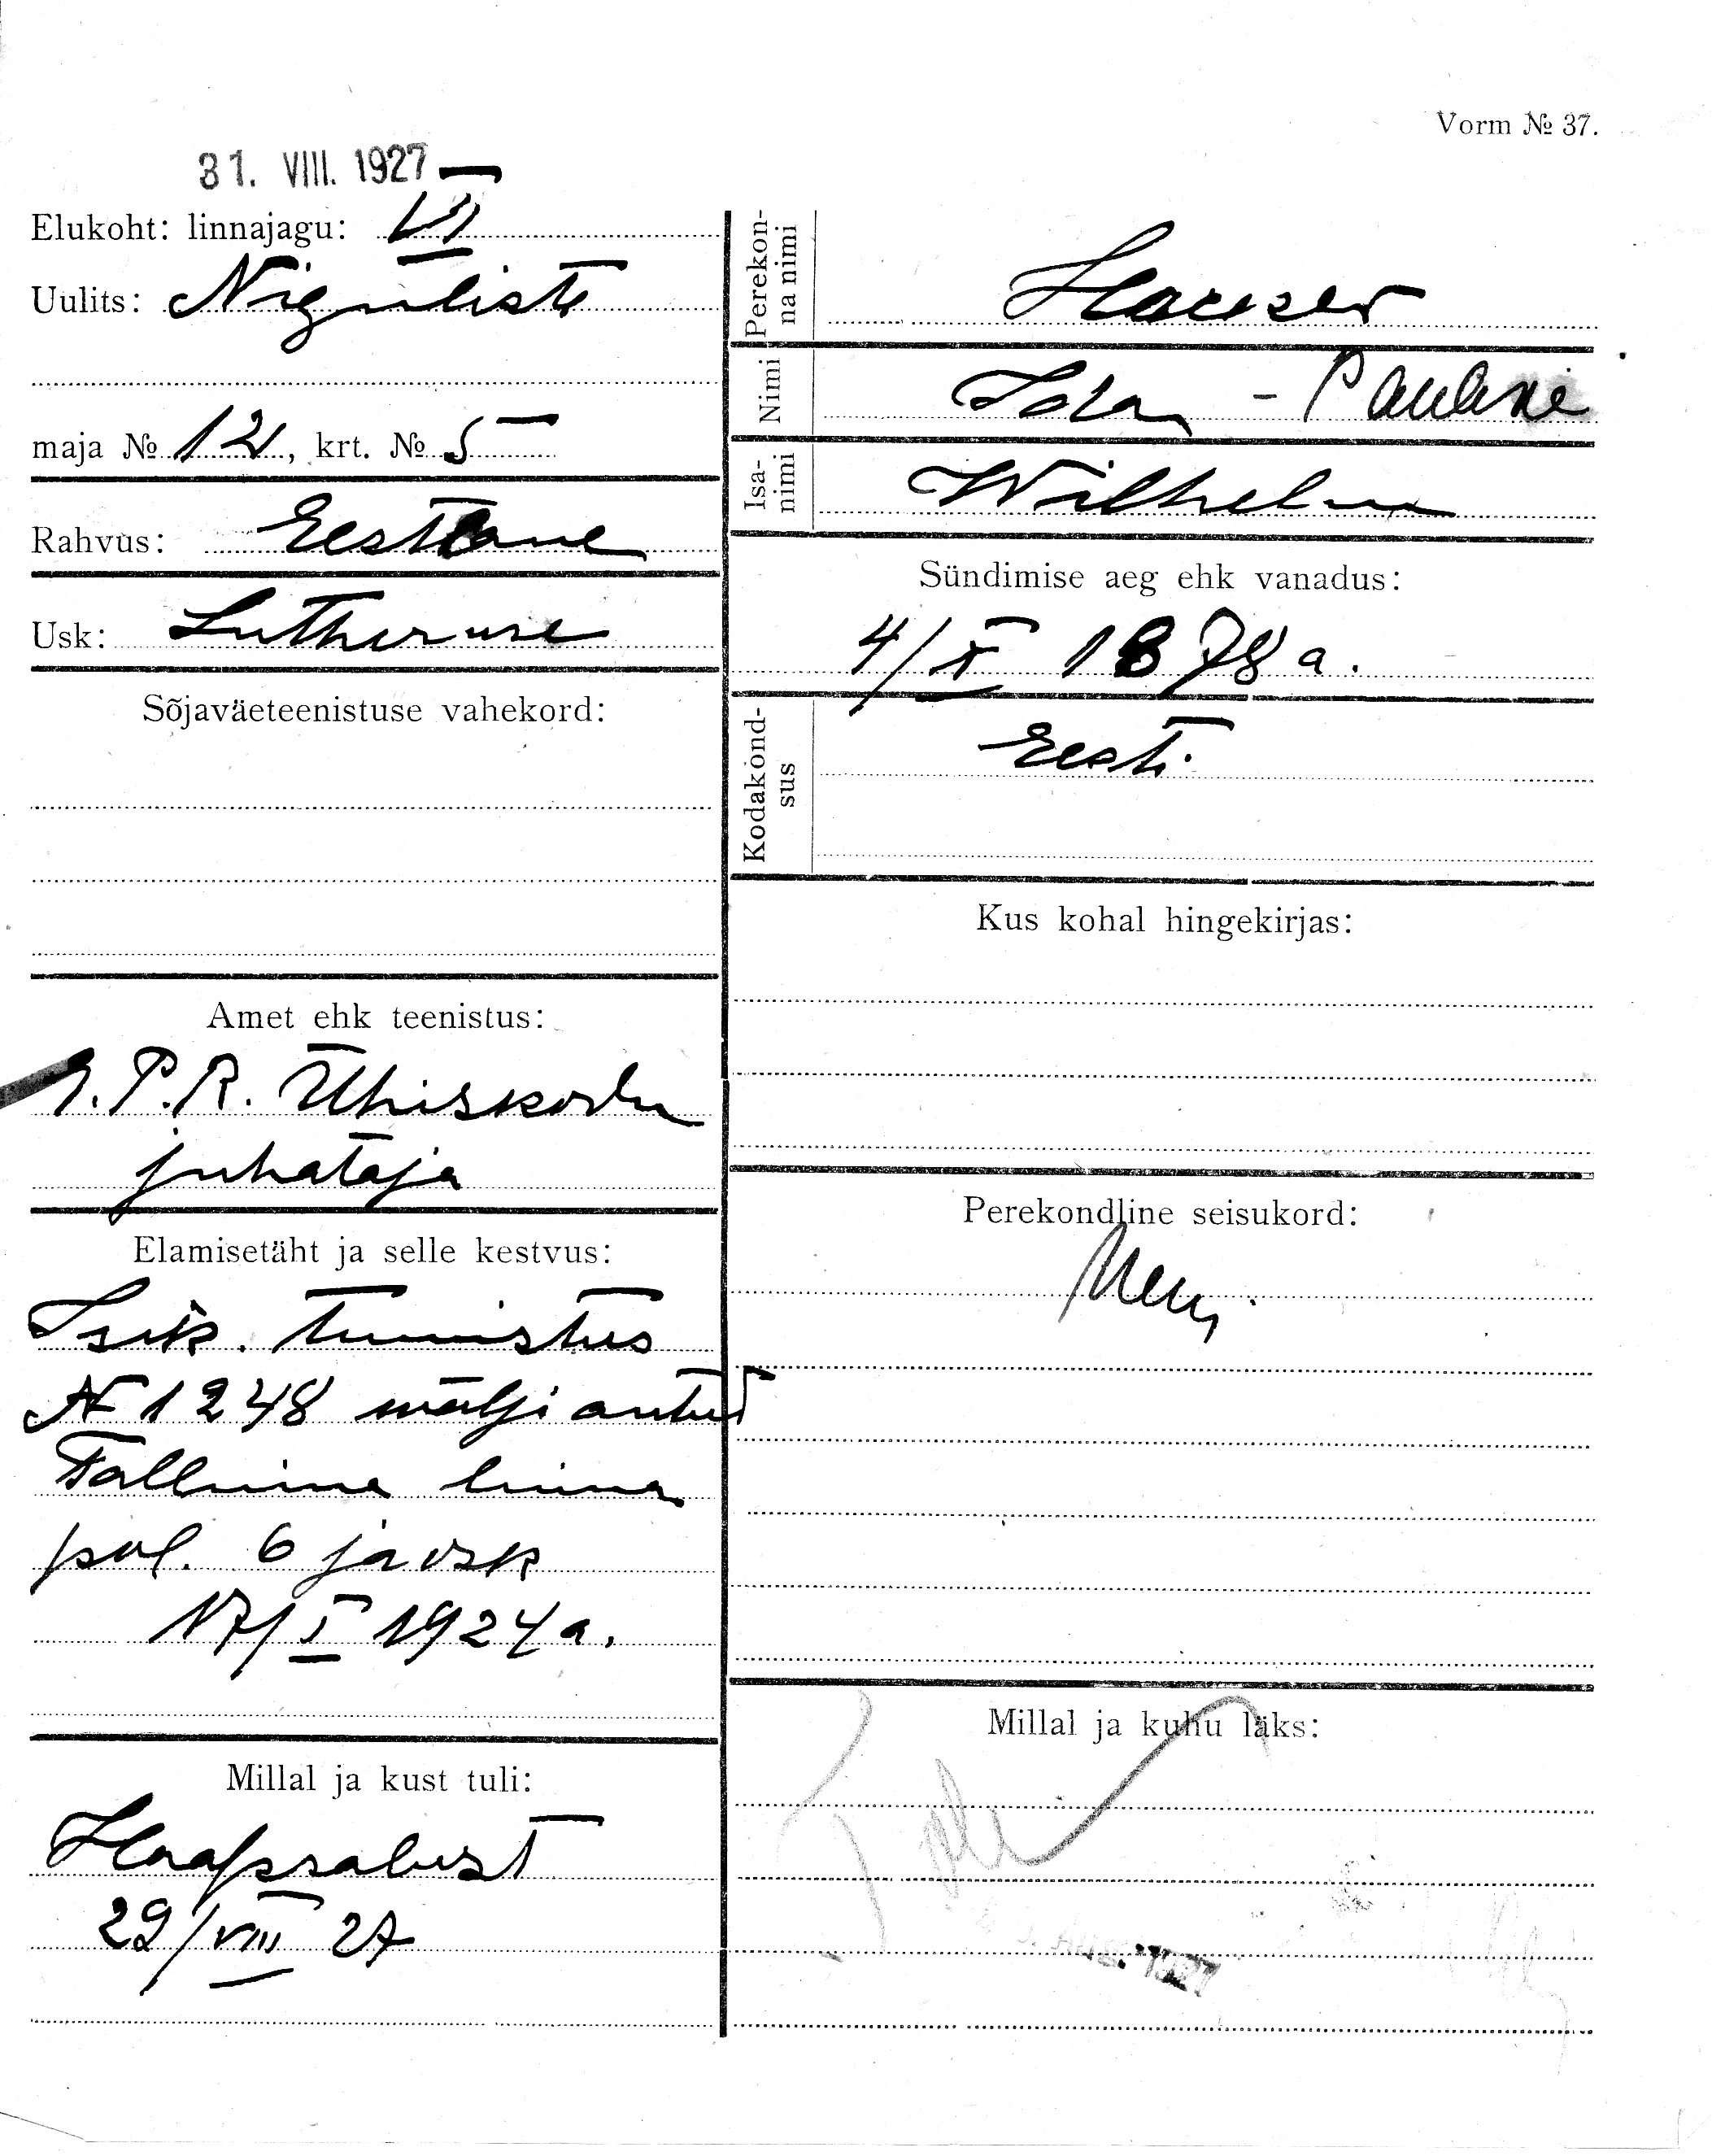 Vorm № 37.
31. VIII. 1927
Elukoht: linnajagu: VI
Uulits: Niguliste
maja № 12, krt. № 5
Rahvus: Eestlane
Usk: Lutheruse
Sõjaväeteenistuse vahekord:
Amet ehk teenistus:
P.R. Ühiskodu
juhataja
Elamisetäht ja selle kestvus:
Isik. tunnistus
N 1248 välja antud
Tallinna linna
pol. 6 jaosk
17/I 1924 a.
Millal ja kust tuli:
Haapsalust
29/VIII 27
Perekonna nimi
Hauser
Nimi
Ida - Pauline
Isanimi
Wilhelm
Sündimise aeg ehk vanadus:
4/X 1878 a.
Kodakondsus
Eesti
Kus kohal hingekirjas:
Perekondline seisukord:
Millal ja kuhu läks: